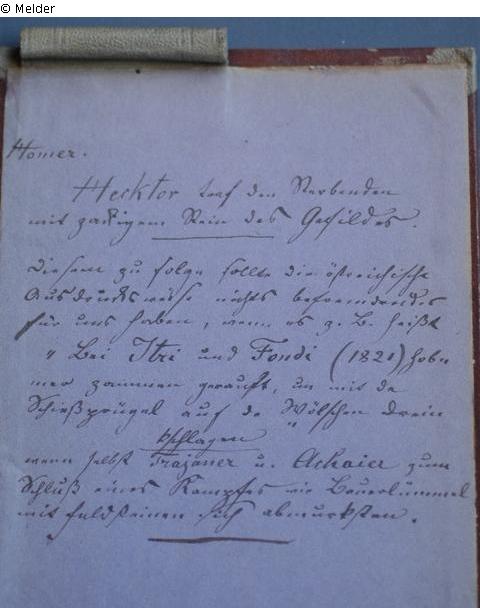 © Melder
Homer.
Hecktor traf den Sterbenden
mit zackigem Stein des Gefildes.
Diesem zu folge sollte die östreichische
Ausdrucksweise nichts befremdendes
für uns haben, wenn es z. B. heißt
„ Bei Itri und Fondi (1821) hobn
mer zammen gerauft, un mit de
Schießprügel auf de Wölschen drein
kschlagen
wenn selbst Trajaner u. Achaier zum
Schluß eines Kampfes wie Bauerlümmel
mit Feldsteinen sich abmurksten.